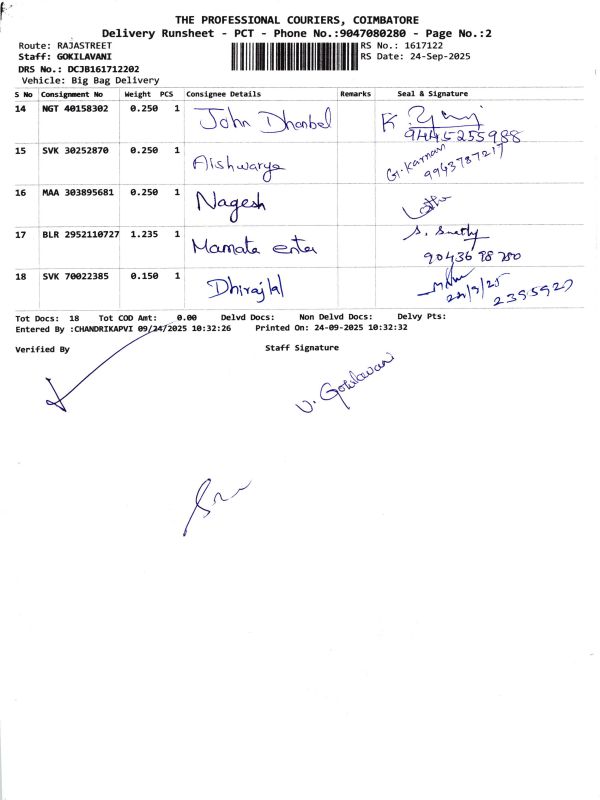 THE PROFESSIONAL COURIERS, COIMBATORE
Delivery Runsheet - PCT - Phone No.:9047080280 - Page No.:2
Route: RAJASTREET RS No.: 1617122
Staff: GOKILAVANI RS Date: 24-Sep-2025
DRS No.: DCJB161712202
Vehicle: Big Bag Delivery
S No Consignment No Weight PCS Consignee Details Remarks Seal & Signature
14 NGT 40158302 0.250 1 John Dhanbel K
9445255988
15 SVK 30252870 0.250 1 Aishwarya G. Karnan
9943787217
16 MAA 303895681 0.250 1 Nagesh
17 BLR 2952110727 1.235 1 Mamata enter S.
18 SVK 70022385 0.150 1 Dhirajlal
2395927
Tot Docs: 18 Tot COD Amt: 0.00 Delvd Docs: Non Delvd Docs: Delvy Pts:
Entered By :CHANDRIKAPVI 09/24/2025 10:32:26 Printed On: 24-09-2025 10:32:32
Verified By Staff Signature
V. Gokilavani